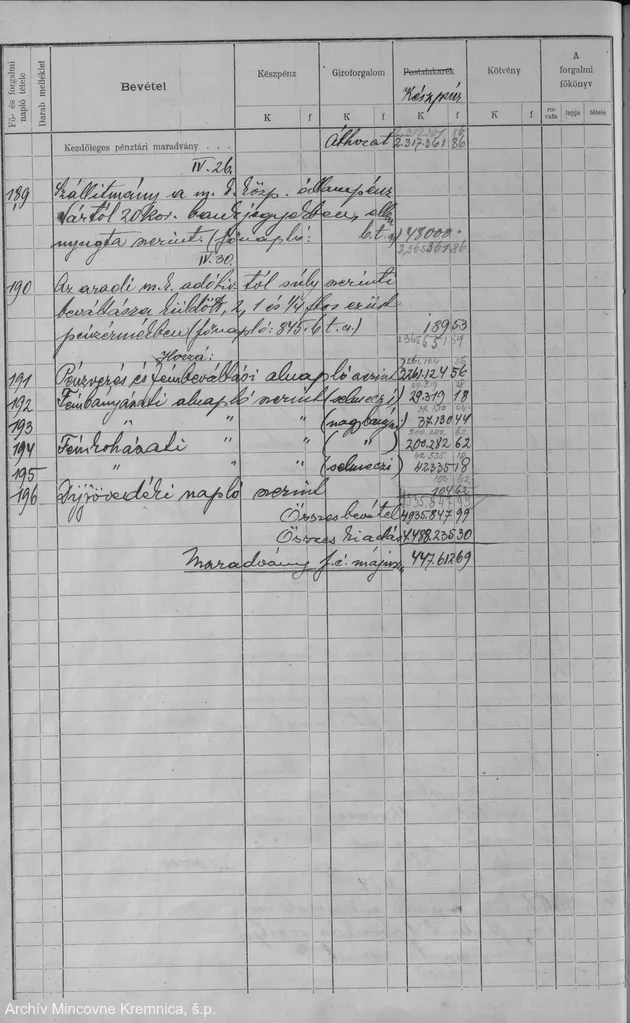 Fő- és forgalmi napló tétele
Darab melléklet
Bevétel
Készpénz
Giroforgalom
Postatakarék
Készpénz
Kötvény
A forgalmi főkönyv
K f K f K f K f rovata lapja tétele
Kezdőleges pénztári maradvány . . . Áthozat 2.317.361 86
IV. 26.
189 Szállítmány a m. k. közp. állampénz
tártól 20 kor. bankjegyekben, ellen
nyugta szerint. (főnapló: b. t. a) 48000
2,365361 86
IV. 30.
190 Az aradi m. k. adóhiv. tól súly szerinti
beváltásra küldött, 2, 1 és 1/4 ftos ezüst
pénzérmékben (főnapló: 845. b. t. a.) 189 53
2365551 39
Hozzá:
191 Pénzverés és fémbeváltási alnapló szerint 2261.124 56
192 Fémbányászati alnapló szerint (selmeczi) 29.319 18
193 " " " (nagybányai) 37.130 44
194 Fémkohászati " " ( " ) 200.282 62
195 " " " (selmeczi) 42335 18
196 Díjjövedéki napló szerint 104 62
Összes bevétel 4935.847 99
Összes kiadás 4.488.235 30
Maradvány f. é. május 447.612 69
Archív Mincovne Kremnica, š.p.